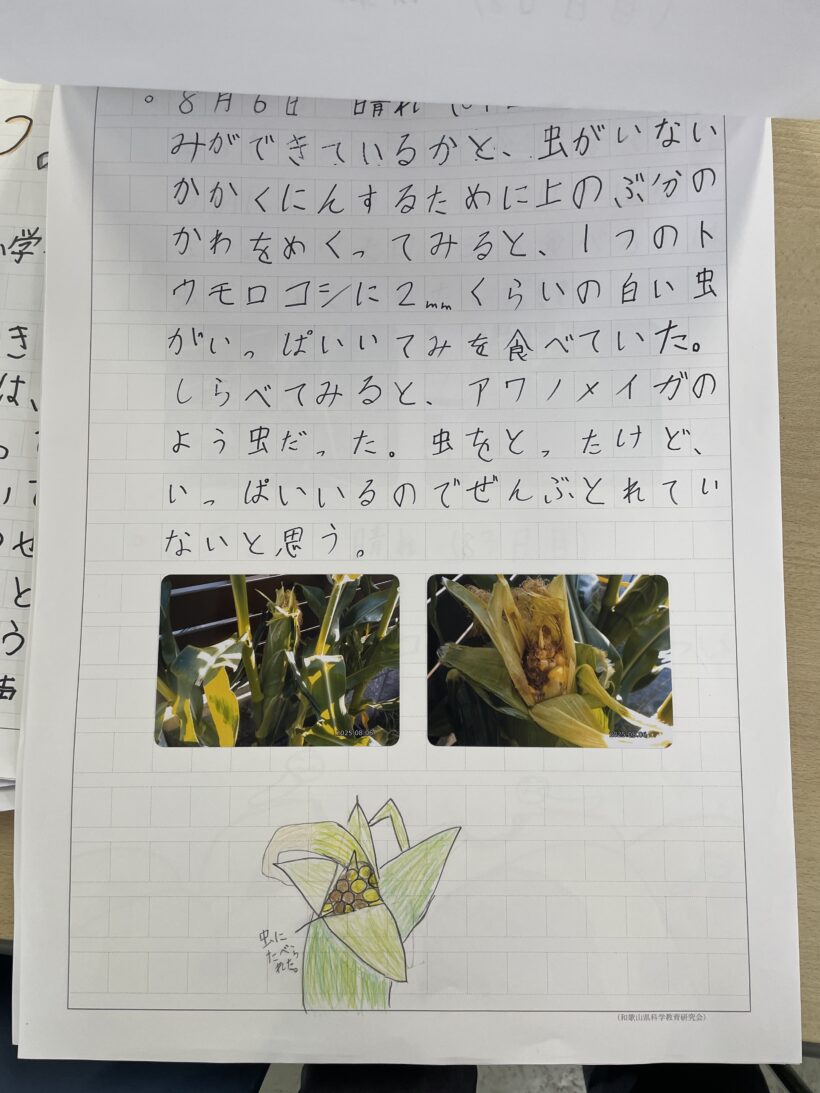 。8月6日 晴れ
みができているかと、虫がいない
かかくにんするために上のぶ分の
かわをめくってみると、1つのト
ウモロコシに2mmくらいの白い虫
がいっぱいいてみを食べていた。
しらべてみると、アワノメイガの
よう虫だった。虫をとったけど、
いっぱいいるのでぜんぶとれてい
ないと思う。
2025.08.06
2025.08.06
虫に
たべら
れた。
(和歌山県科学教育研究会)